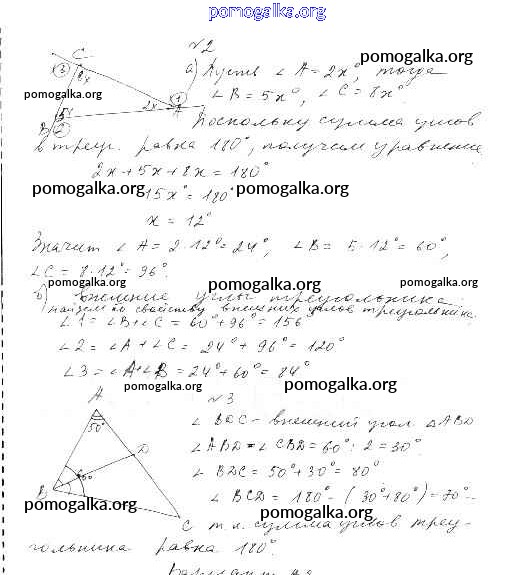 pomogalka.org
№2
pomogalka.org
а) Пусть ∠A = 2x°, тогда
∠B = 5x°, ∠C = 8x°
pomogalka.org
C
3
8x
2x
1
A
5x
B
2
Поскольку сумма углов
в треуг. равна 180°, получим уравнение
2x + 5x + 8x = 180°
pomogalka.org
15x° = 180°
pomogalka.org
x = 12°
Значит ∠A = 2·12° = 24°, ∠B = 5·12° = 60°,
∠C = 8·12° = 96°.
pomogalka.org
pomogalka.org
pomogalka.org
б) Внешние углы треугольника
найдем по свойству внешних углов треугольника.
∠1 = ∠B + ∠C = 60° + 96° = 156°
∠2 = ∠A + ∠C = 24° + 96° = 120°
∠3 = ∠A + ∠B = 24° + 60° = 84°
pomogalka.org
pomogalka.org
№3
A
50°
D
60°
B
C
∠BDC - внешний угол △ABD
∠ABD = ∠CBD = 60° : 2 = 30°
∠BDC = 50° + 30° = 80°
∠BCD = 180° - (30° + 80°) = 70° -
pomogalka.org
pomogalka.org
т.к. сумма углов треу-
гольника равна 180°.
pomogalka.org